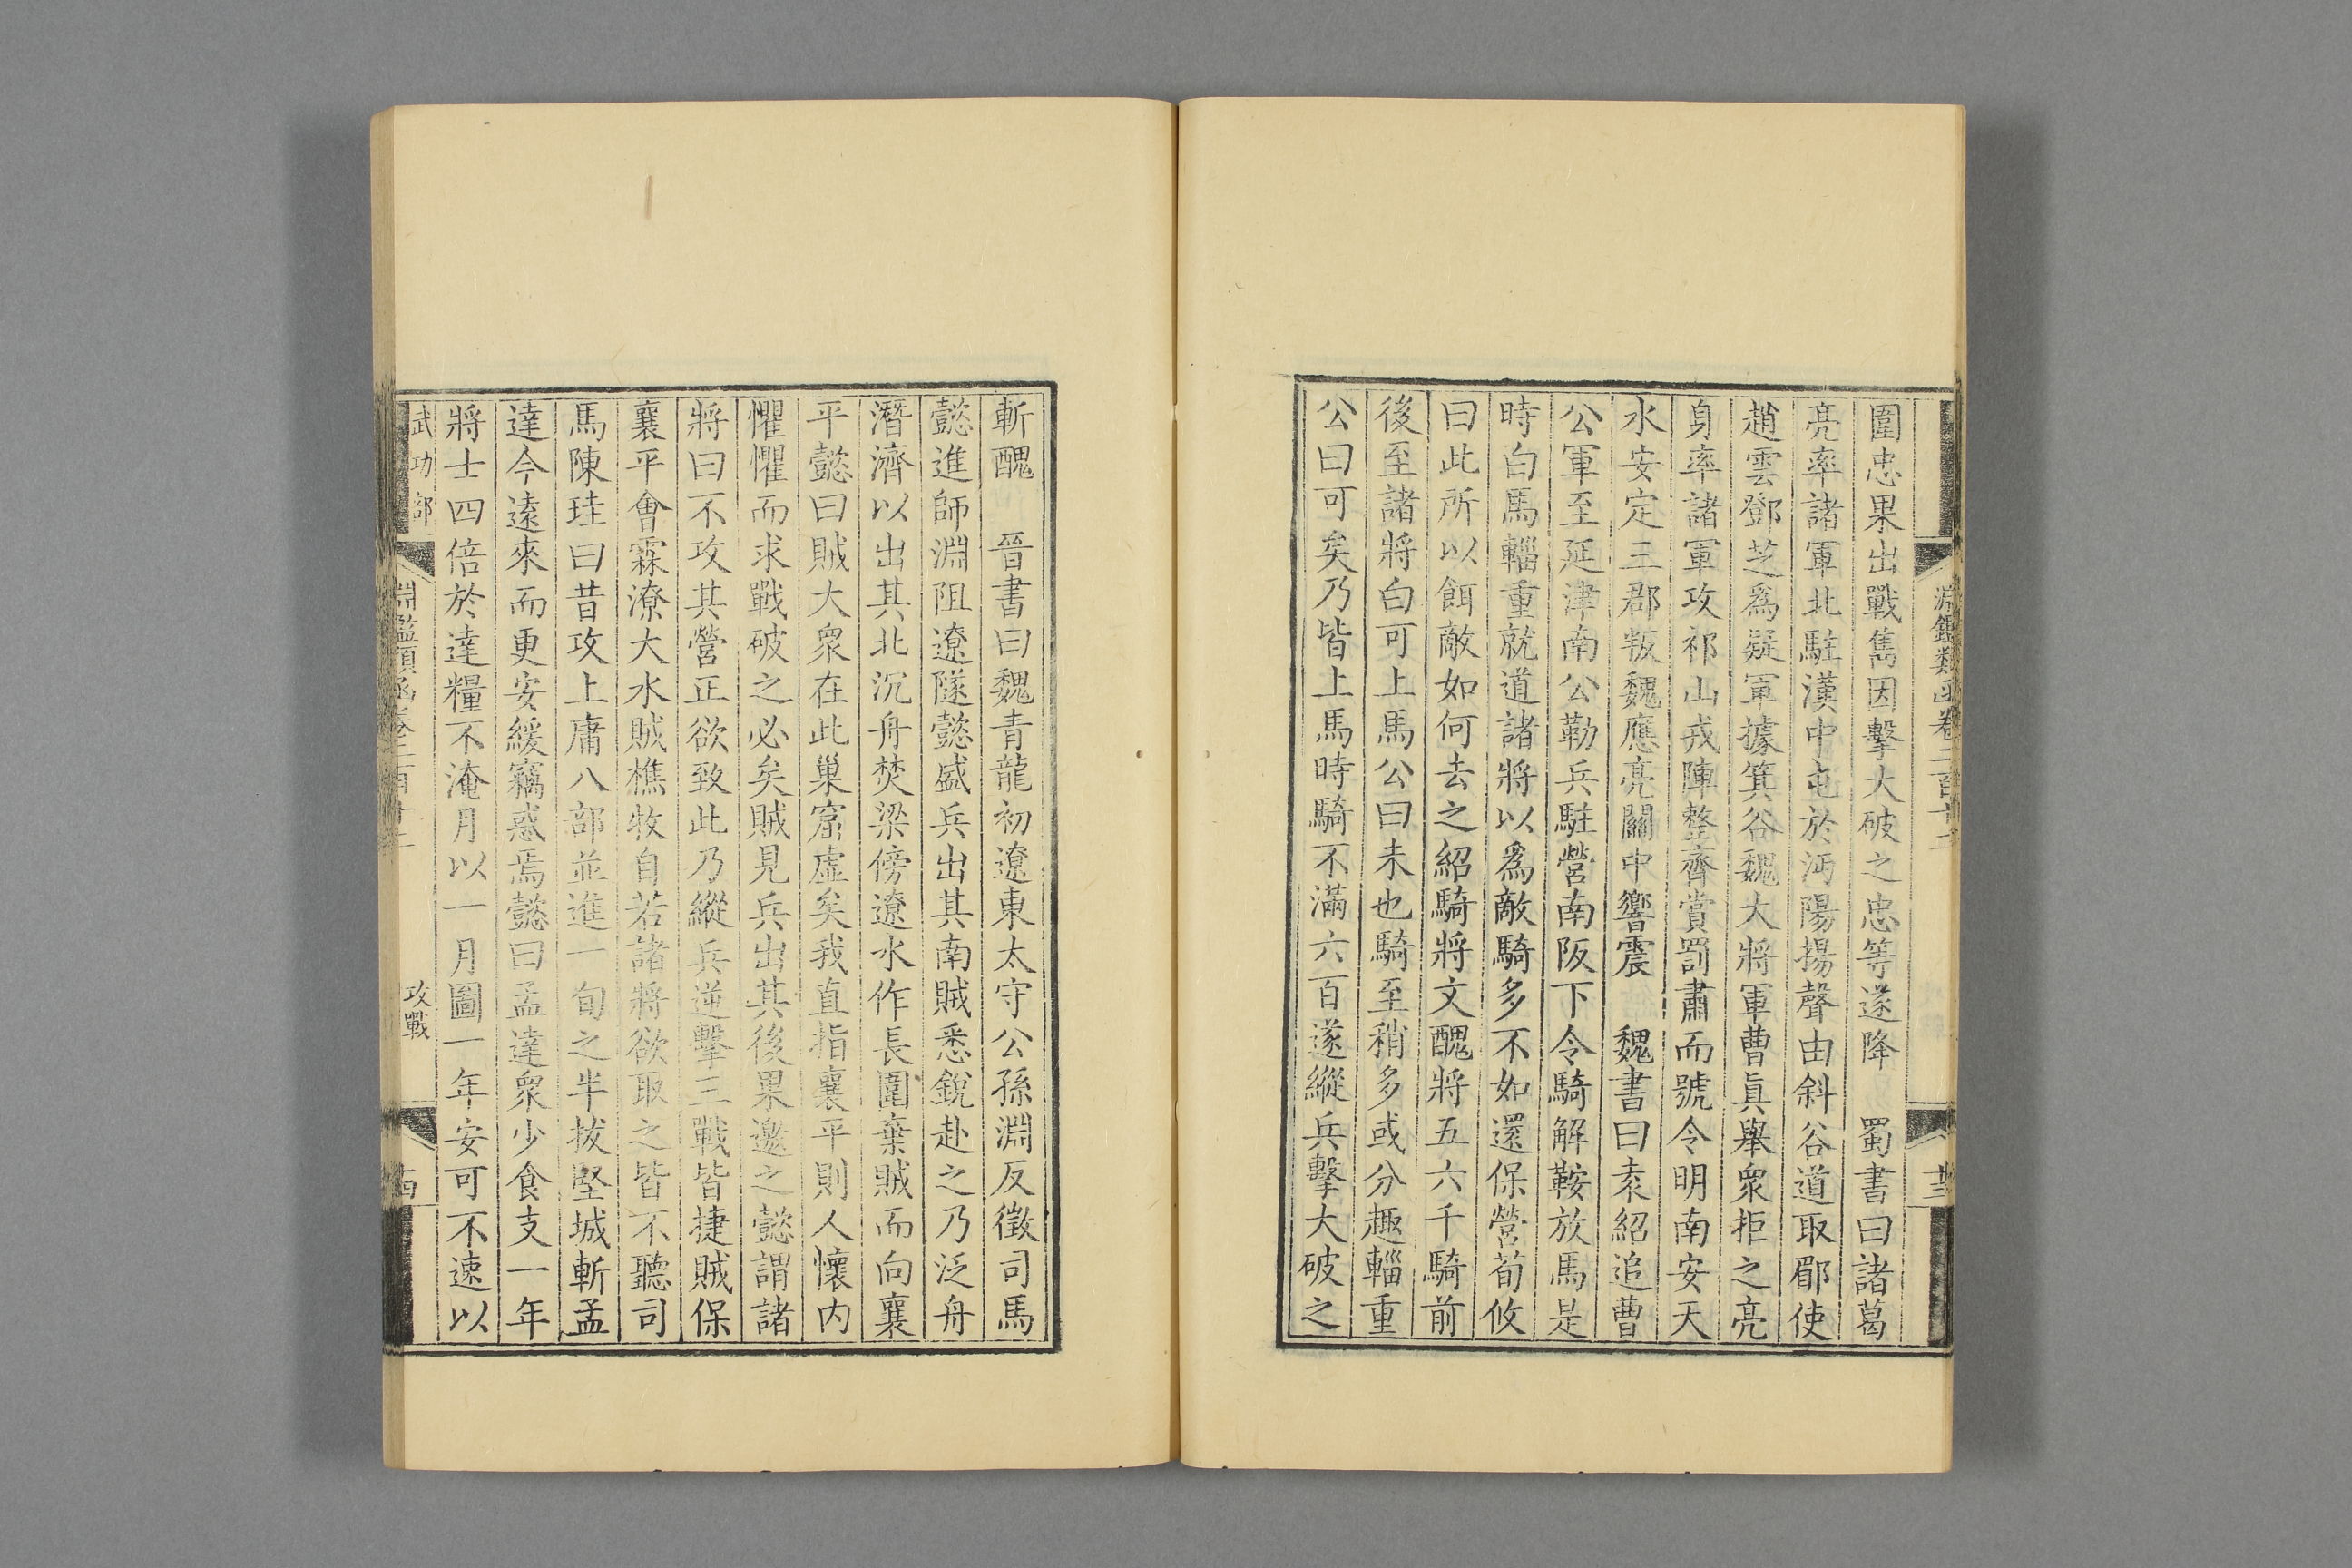 淵鑑類函卷二百十二
圍忠果出戰雋因擊大破之忠等遂降　蜀書曰諸葛
亮率諸軍北駐漢中屯於沔陽揚聲由斜谷道取郿使
趙雲鄧芝爲疑軍據箕谷魏大將軍曹眞舉衆拒之亮
身率諸軍攻祁山戎陣整齊賞罰肅而號令明南安天
水安定三郡叛魏應亮關中響震　魏書曰袁紹追曹
公軍至延津南公勒兵駐營南阪下令騎解鞍放馬是
時白馬輜重就道諸將以爲敵騎多不如還保營荀攸
曰此所以餌敵如何去之紹騎將文醜將五六千騎前
後至諸將白可上馬公曰未也騎至稍多或分趣輜重
公曰可矣乃皆上馬時騎不滿六百遂縱兵擊大破之
斬醜　晉書曰魏青龍初遼東太守公孫淵反徵司馬
懿進師淵阻遼隧懿盛兵出其南賊悉銳赴之乃泛舟
潛濟以出其北沉舟焚梁傍遼水作長圍棄賊而向襄
平懿曰賊大衆在此巢窟虛矣我直指襄平則人懷内
懼懼而求戰破之必矣賊見兵出其後果邀之懿謂諸
將曰不攻其營正欲致此乃縱兵逆擊三戰皆捷賊保
襄平會霖潦大水賊樵牧自若諸將欲取之皆不聽司
馬陳珪曰昔攻上庸八部並進一旬之半拔堅城斬孟
達今遠來而更安緩竊惑焉懿曰孟達衆少食支一年
將士四倍於達糧不淹月以一月圖一年安可不速以
武功部
淵鑑類函卷二百十二
攻戰